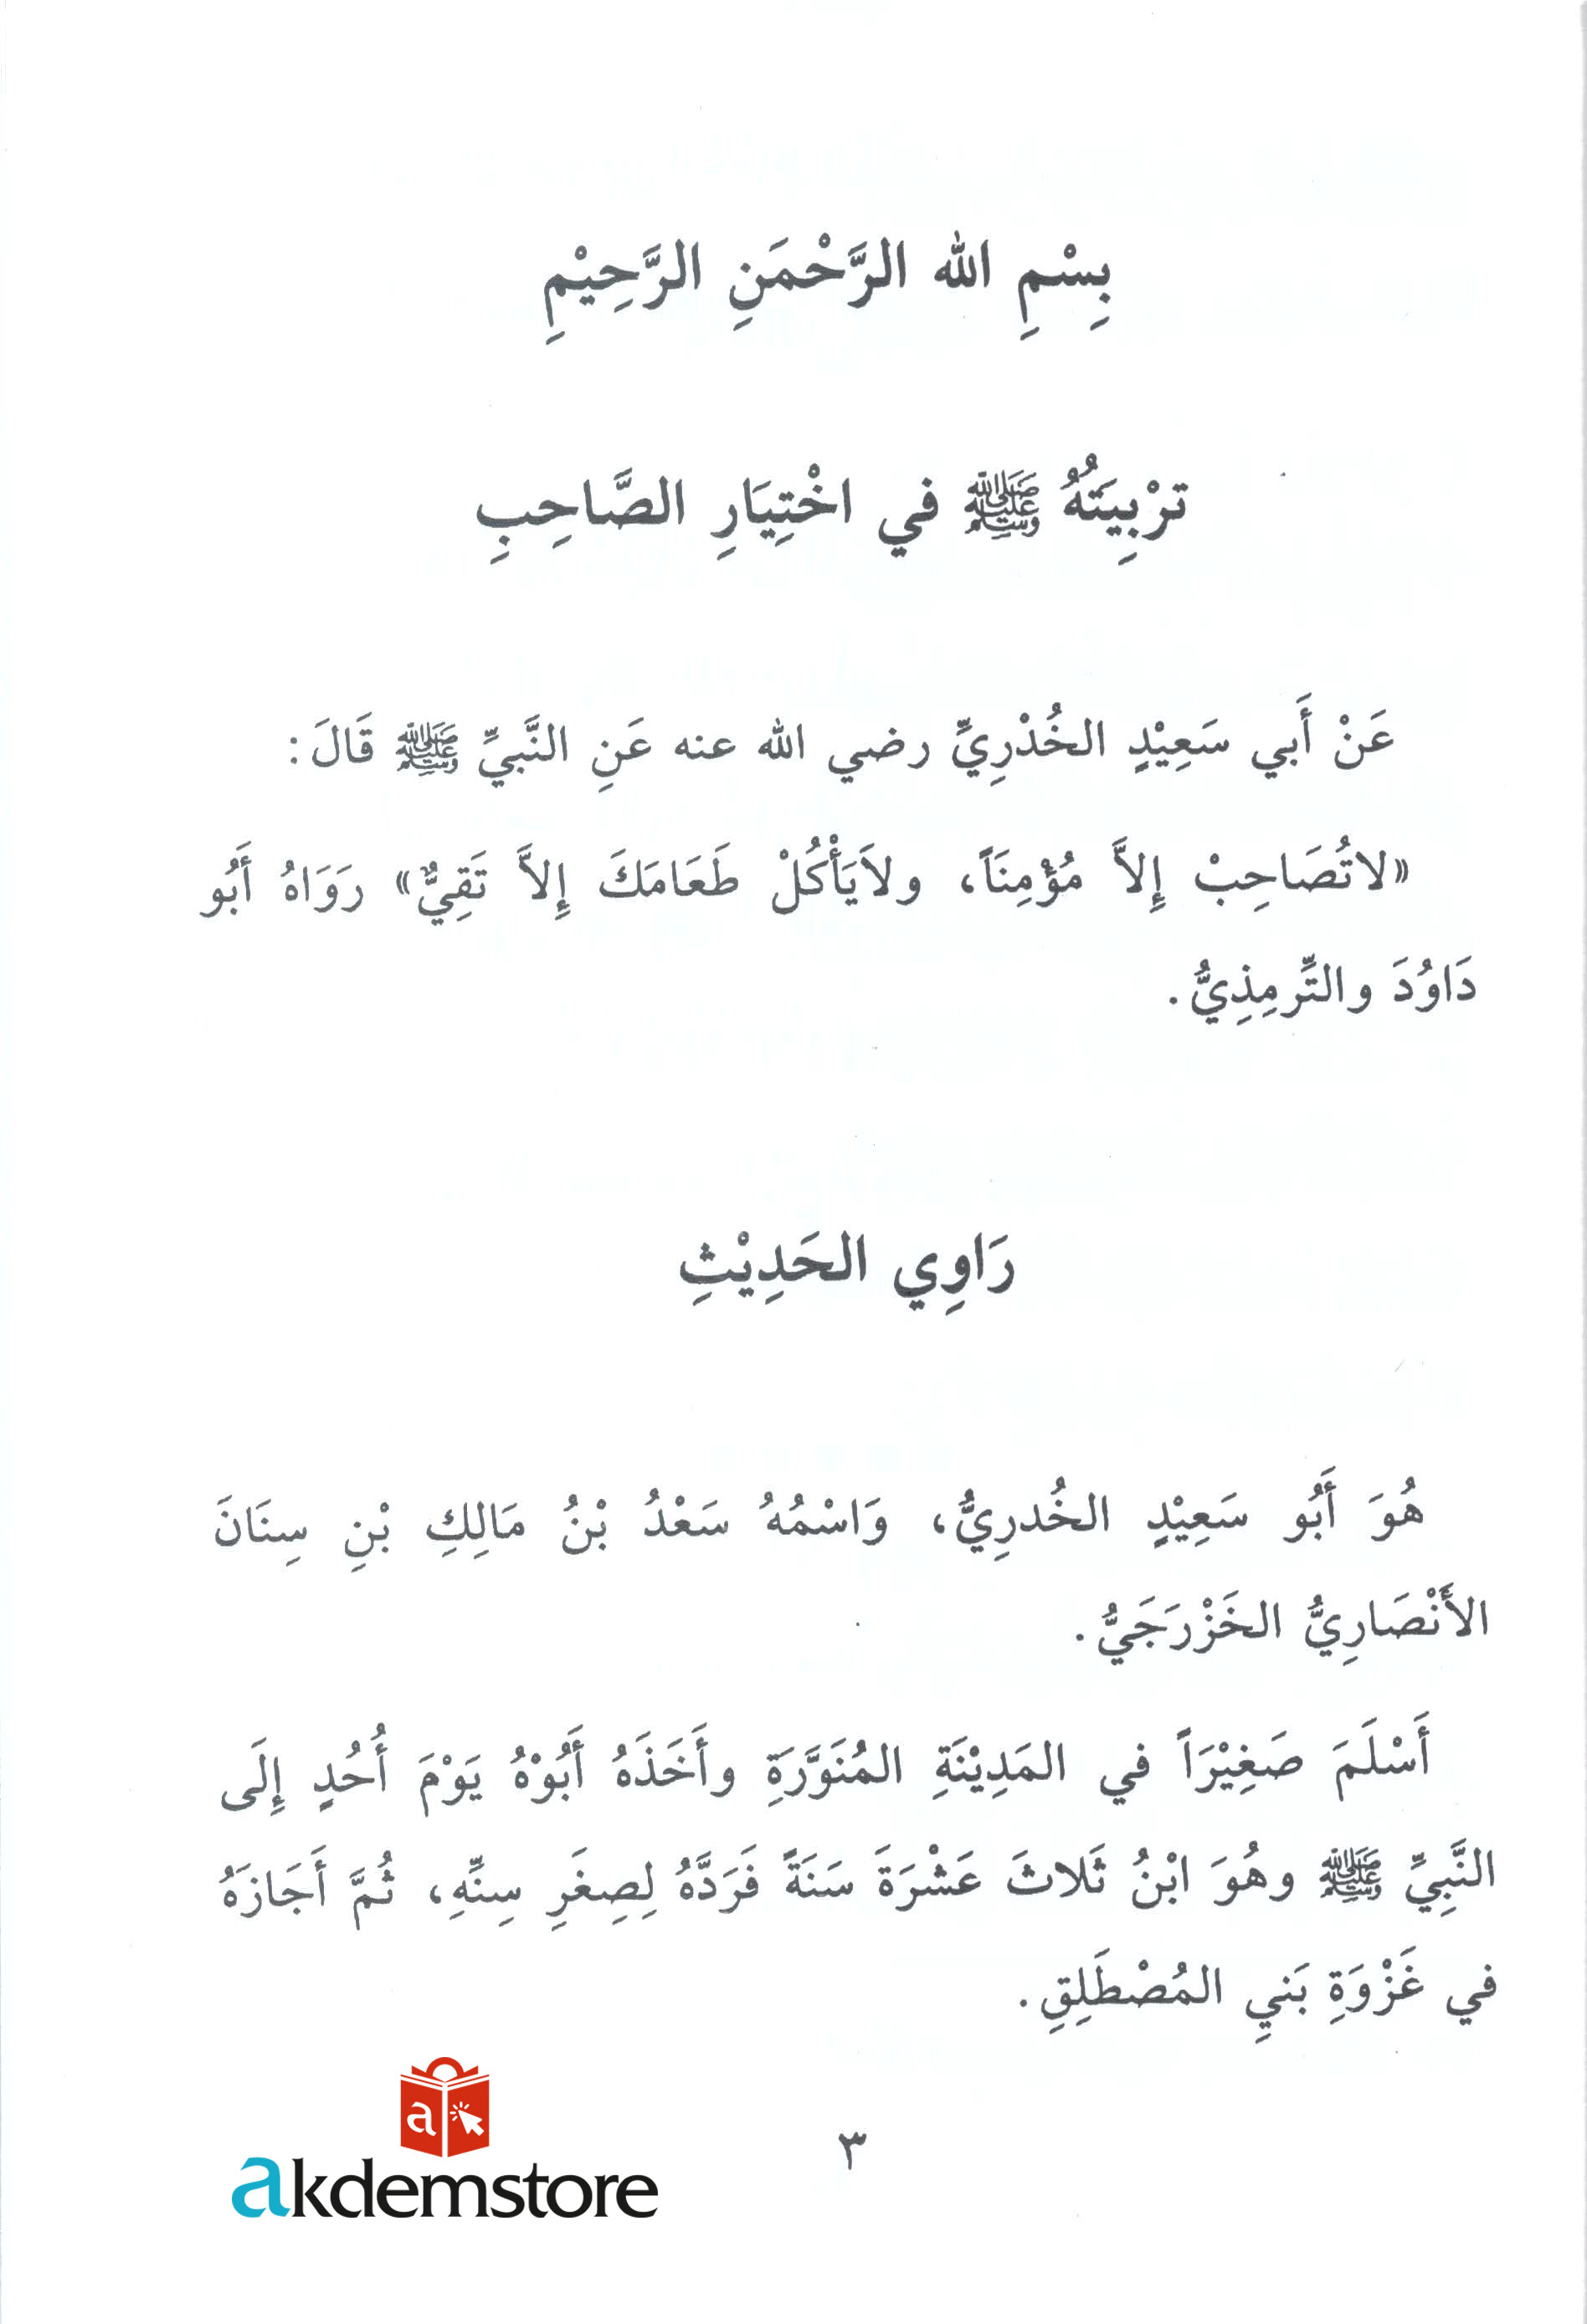 بِسْمِ الله الرَّحْمَنِ الرَّحِيْمِ
تَرْبِيَتُهُ ﷺ في اخْتِيَارِ الصَّاحِبِ
عَنْ أَبي سَعِيْدٍ الخُدْرِيِّ رضي الله عنه عَنِ النَّبيِّ ﷺ قَالَ:
«لاتُصَاحِبْ إِلاَّ مُؤْمِنَاً، ولاَيَأْكُلْ طَعَامَكَ إِلاَّ تَقِيٌّ» رَوَاهُ أَبُو
دَاوُدَ والتِّرمِذِيُّ.
رَاوِي الحَدِيْثِ
هُوَ أَبُو سَعِيْدٍ الخُدرِيُّ، وَاسْمُهُ سَعْدُ بْنُ مَالِكِ بْنِ سِنَانَ
الأَنْصَارِيُّ الخَزْرَجَيُّ.
أَسْلَمَ صَغِيْرَاً في المَدِيْنَةِ المُنَوَّرَةِ وأَخَذَهُ أَبُوْهُ يَوْمَ أُحُدٍ إِلَى
النَّبِيِّ ﷺ وهُوَ ابْنُ ثَلاثَ عَشْرَةَ سَنَةً فَرَدَّهُ لِصِغَرِ سِنِّهِ، ثُمَّ أَجَازَهُ
في غَزْوَةِ بَنيِ المُصْطَلِقِ.
٣
a
akdemstore